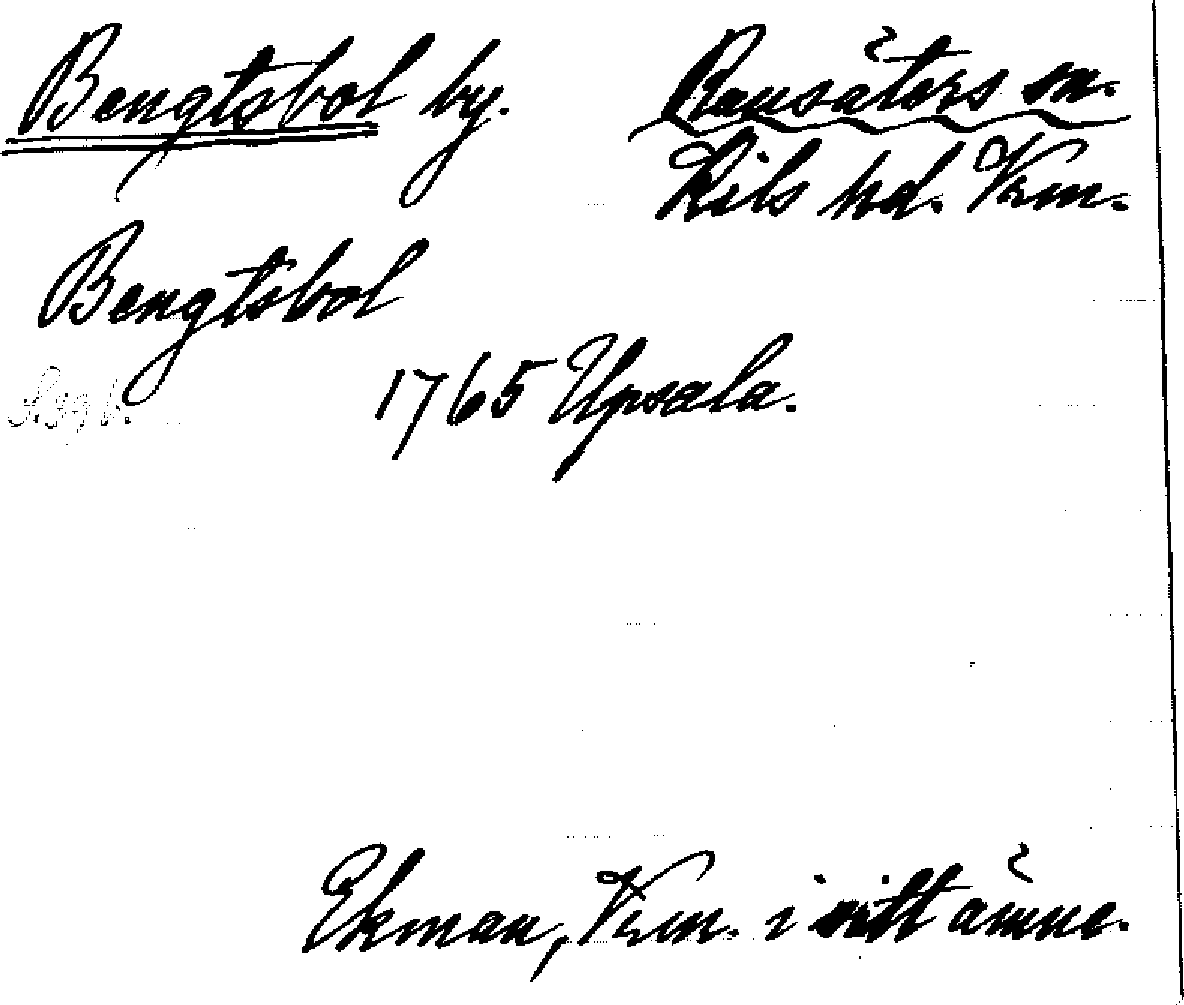 Bengtsbol by. Ransäters sn.
Kils hd. Vrm.
Bengtsbol
1765 Upsala.
Ekman, Vrm. i sitt ämne.